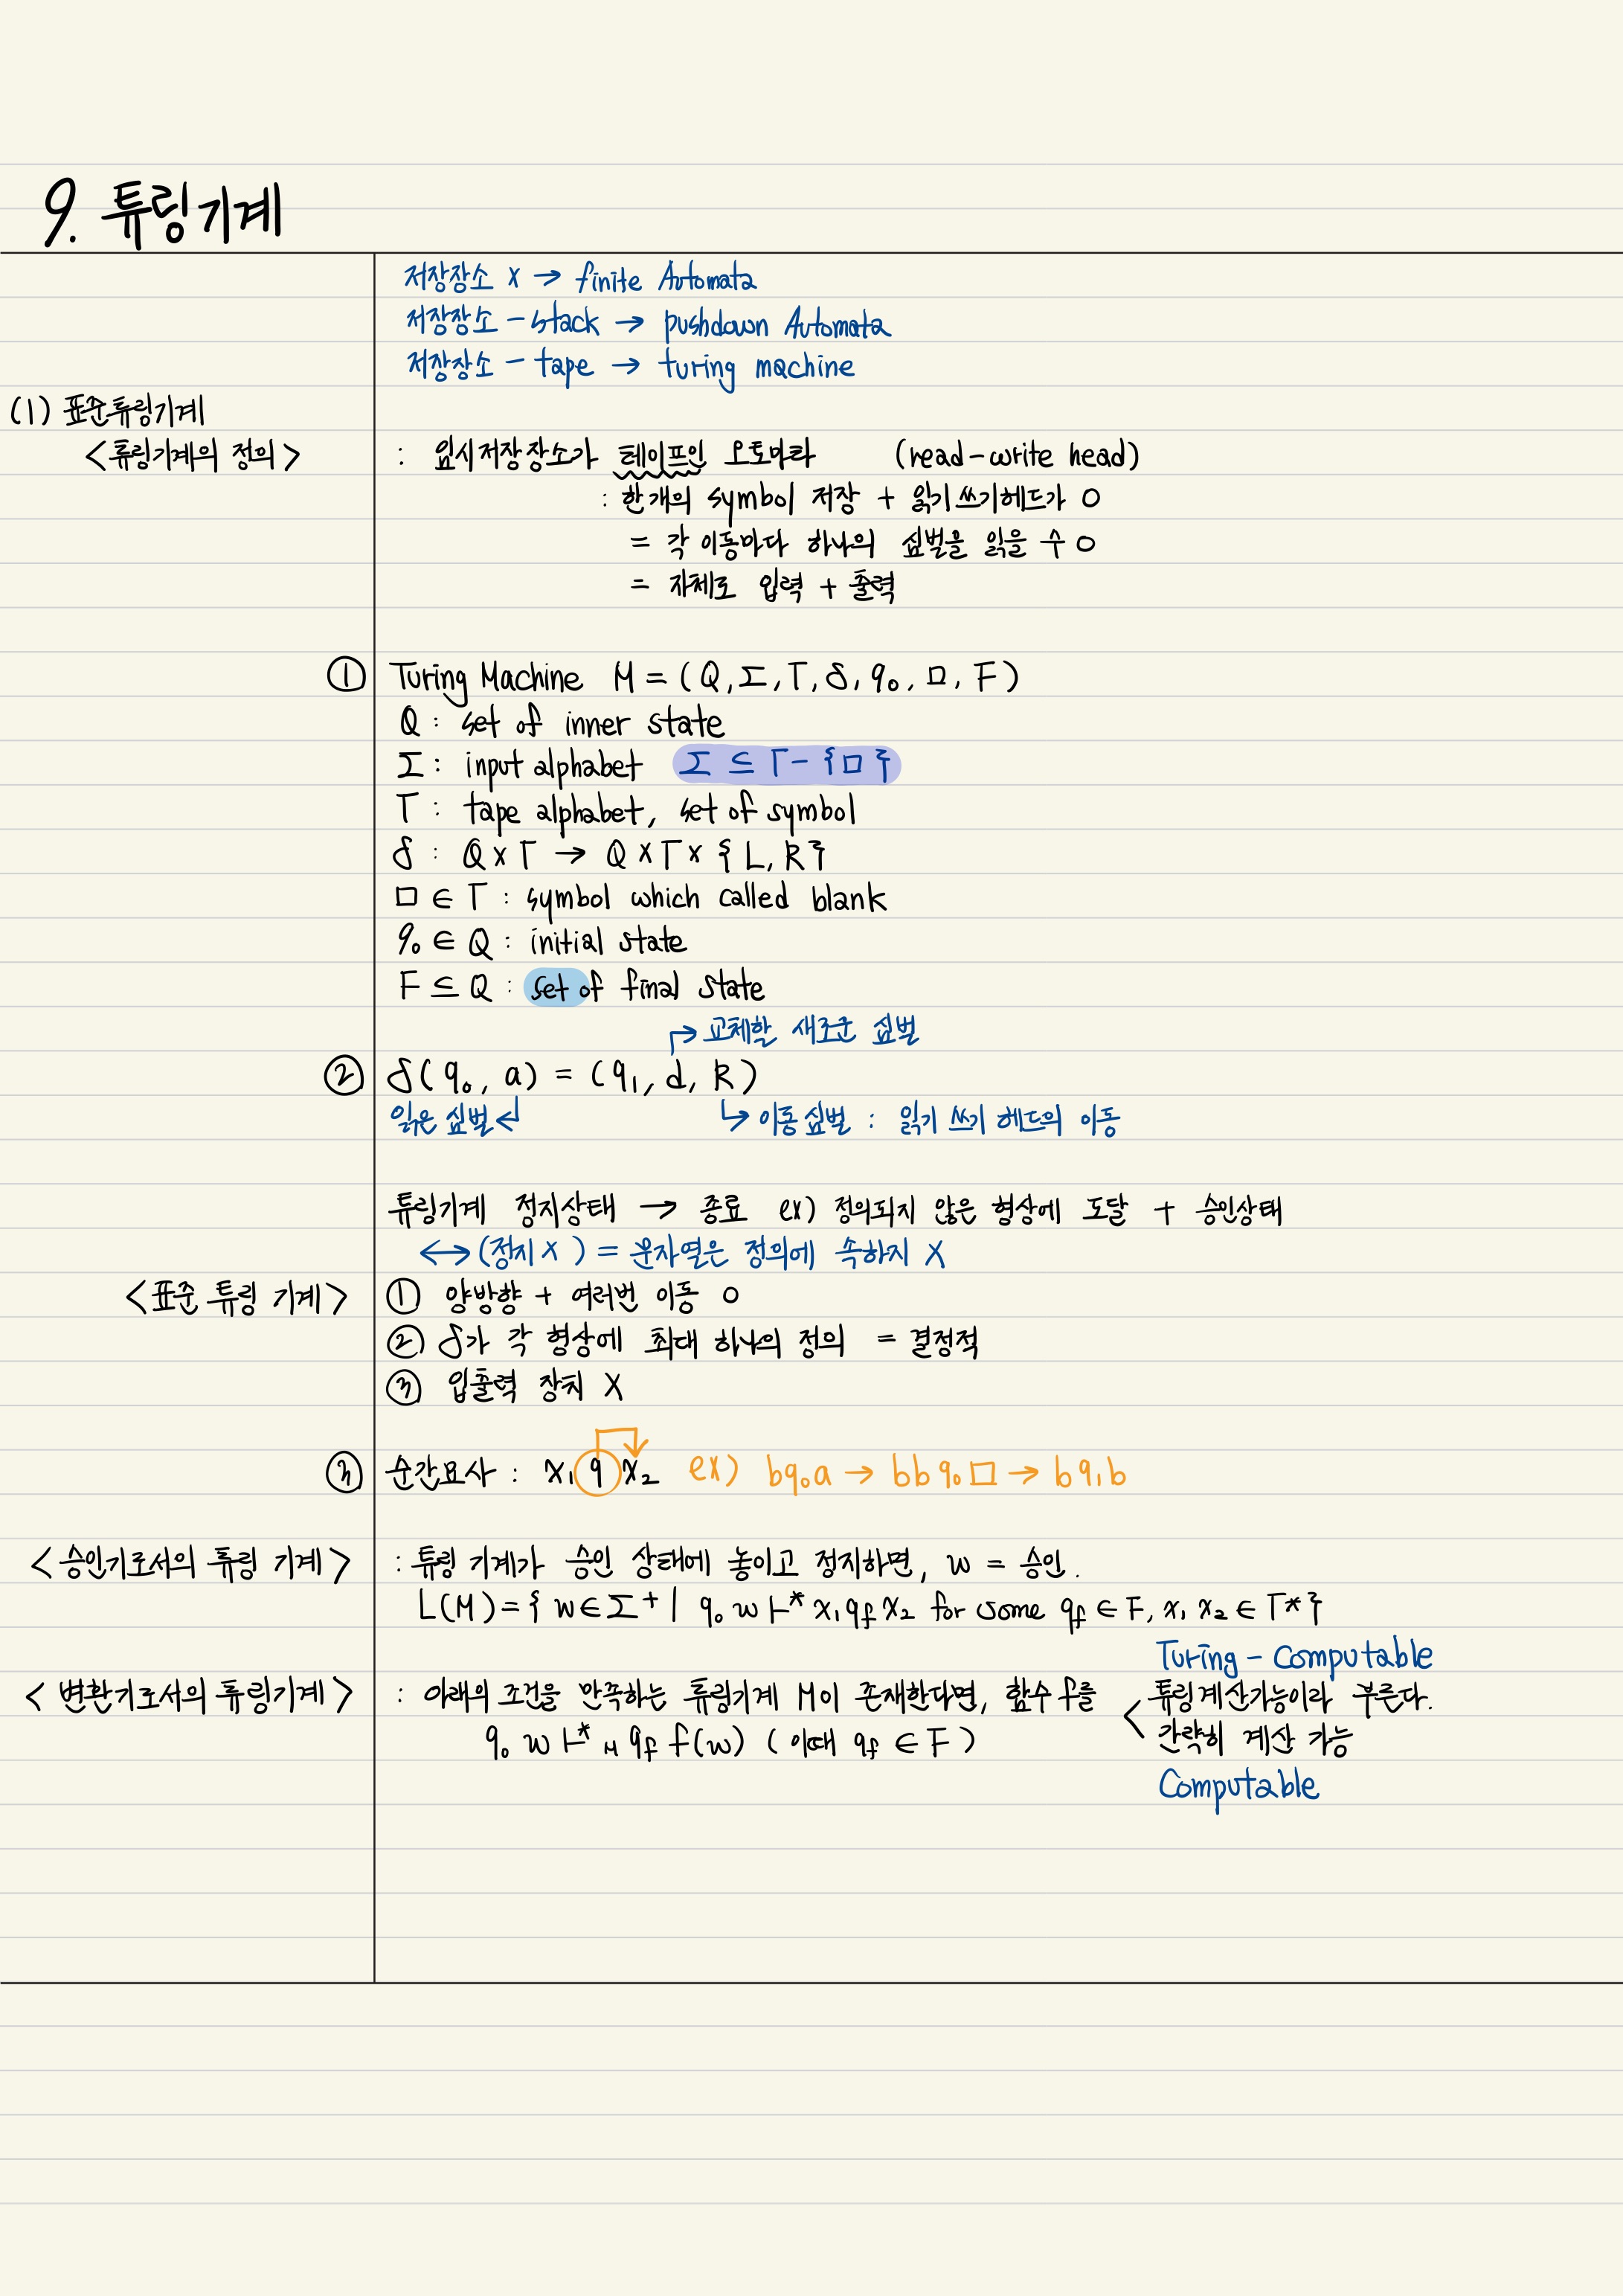 9. 튜링기계
저장장소 x → finite Automata
저장장소 - stack → pushdown Automata
저장장소 - tape → turing machine
(1) 표준튜링기계
<튜링기계의 정의> : 임시저장장소가 테이프인 오토마타 (read-write head)
: 한개의 symbol 저장 + 읽기쓰기헤드가 O
= 각 이동마다 하나의 심벌을 읽을 수 O
= 자체로 입력 + 출력
① Turing Machine M = (Q, Σ, Γ, δ, q₀, □, F)
Q : set of inner state
Σ : input alphabet Σ ⊆ Γ - {□}
Γ : tape alphabet, set of symbol
δ : Q × Γ → Q × Γ × {L, R}
□ ∈ Γ : symbol which called blank
q₀ ∈ Q : initial state
F ⊆ Q : set of final state
↱ 교체할 새로운 심벌
② δ(q₀, a) = (q₁, d, R)
읽은 심벌 ↲ ↳ 이동심벌 : 읽기 쓰기 헤드의 이동
튜링기계 정지상태 → 종료 ex) 정의되지 않은 형상에 도달 + 승인상태
↔ (정지 x) = 문자열은 정의에 속하지 X
<표준 튜링 기계> ① 양방향 + 여러번 이동 O
② δ가 각 형상에 최대 하나의 정의 = 결정적
③ 입출력 장치 X
③ 순간묘사 : x₁ q x₂ ex) bq₀a → bbq₀□ → bq₁b
<승인기로서의 튜링 기계> : 튜링 기계가 승인 상태에 놓이고 정지하면, w = 승인.
L(M) = { w ∈ Σ⁺ | q₀w ⊢* x₁q_f x₂ for some q_f ∈ F, x₁ x₂ ∈ Γ* }
Turing - Computable
<변환기로서의 튜링기계> : 아래의 조건을 만족하는 튜링기계 M이 존재한다면, 함수 f를 < 튜링계산가능이라 부른다.
q₀ w ⊢*_M q_f f(w) (이때 q_f ∈ F) 간략히 계산 가능
Computable